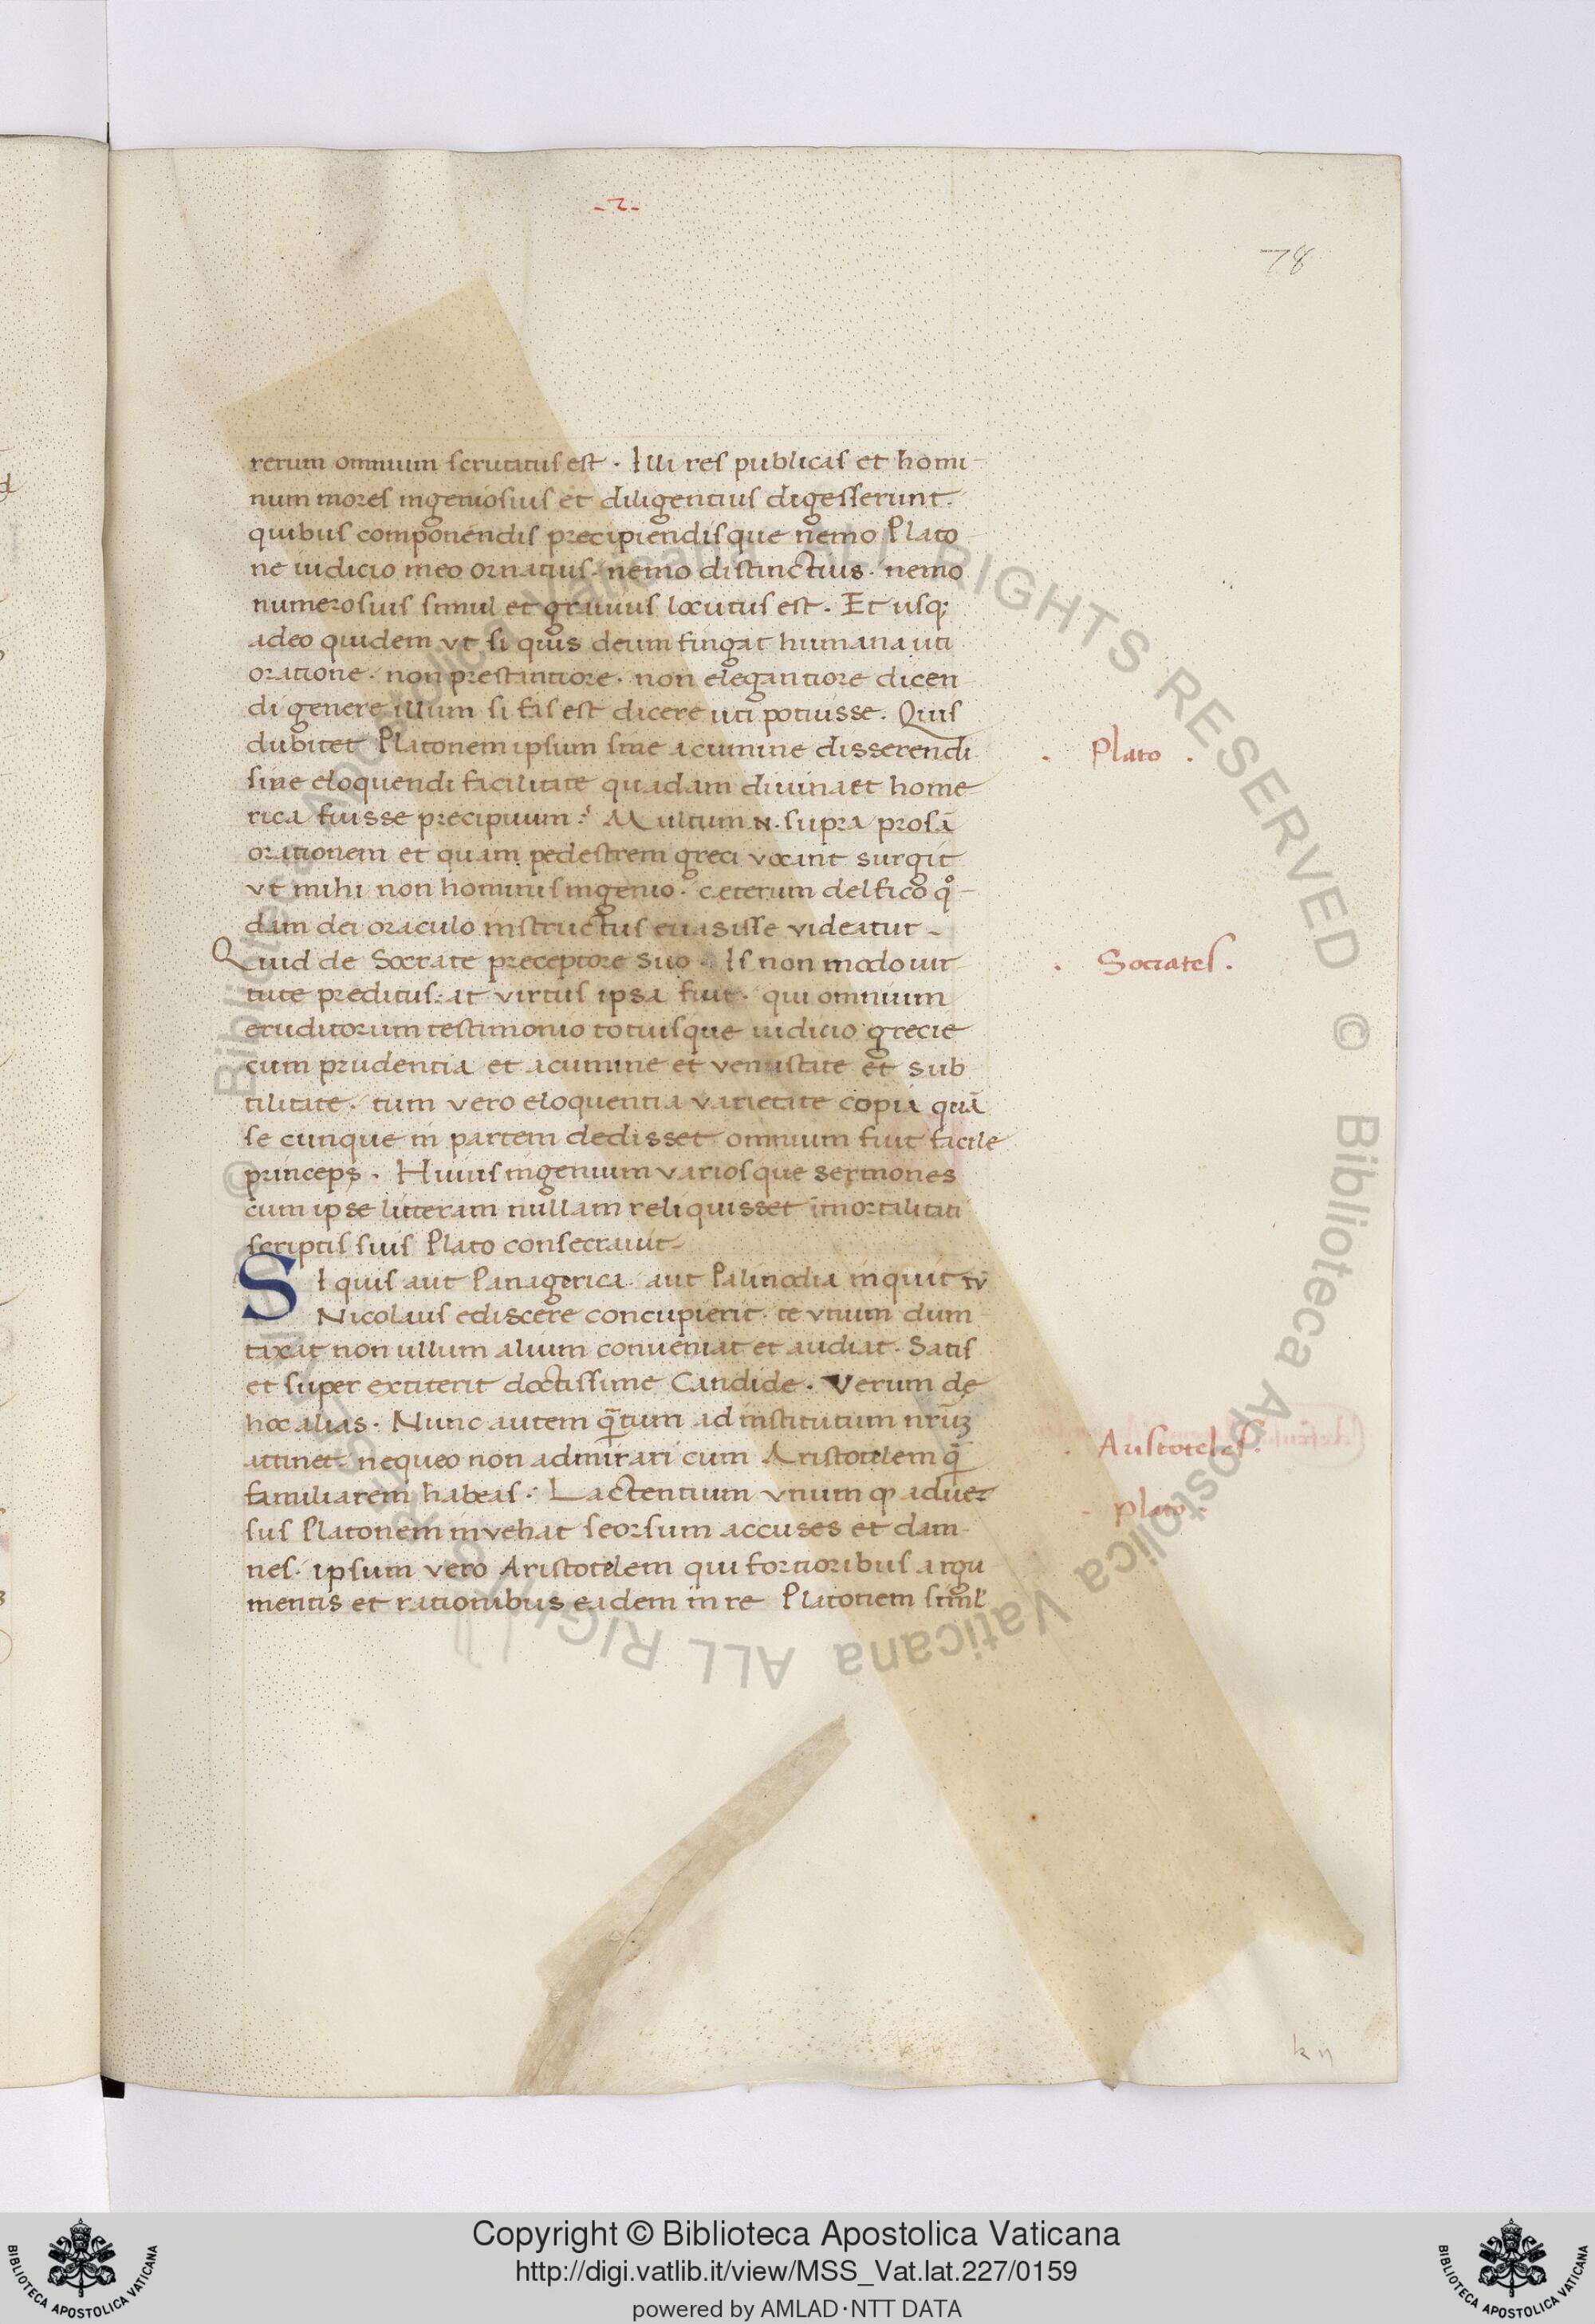 -2-
78
rerum omnium scrutatus est. Illi res publicas et homi-
num mores ingeniosius et diligentius digesserunt.
quibus componendis precipiendisque nemo Plato-
ne iudicio meo ornatius. nemo distinctius. nemo
numerosius simul et gravius locutus est. Et usq;
adeo quidem vt si quis deum fingat humana uti
oratione. non prestantiore. non elegantiore dicen
di genere illum si fas est dicere uti potuisse. Quis
dubitet Platonem ipsum siue acumine disserendi
Plato.
siue eloquendi facilitate quadam diuina et home-
rica fuisse precipuum? Multum .n. supra prosā
orationem et quam pedestrem greci vocant surgit
vt mihi non hominis ingenio. ceterum delfico qͦ-
dam dei oraculo instructus euasisse videatur
Quid de Socrate preceptore suo. Is non modo uir
. Socrates.
tute preditus: at virtus ipsa fuit. qui omnium
eruditorum testimonio totiusque iudicio grecie
cum prudentia et acumine et venustate et sub
tilitate. tum vero eloquentia varietate copia quā
se cunque in partem dedisset omnium fuit facile
princeps. Huius ingenium variosque sermones
cum ipse litteram nullam reliquisset īmortalitati
scriptis suis Plato consecrauit
SI quis aut Panagerica. aut Palinodia inquit tū
Nicolaus ediscere concupierit. te vnum dum
taxat non ullum alium conueniat et audiat. Satis
et super extiterit doctissime Candide. Verum de
hoc alias. Nunc autem q̄tum ad institutum nr̄uʒ
. Aristoteles.
attinet. nequeo non admirari cum Aristotelem q̄
familiarem habeas. Lactentium vnum qꝫ aduer
- plato.
sus Platonem invehat seorsum accuses et dam-
nes. ipsum vero Aristotelem qui fortioribus argu-
mentis et rationibus eadem in re Platonem siml'
k ij
Copyright © Biblioteca Apostolica Vaticana
http://digi.vatlib.it/view/MSS_Vat.lat.227/0159
powered by AMLAD·NTT DATA
BIBLIOTECA APOSTOLICA VATICANA
BIBLIOTECA APOSTOLICA VATICANA
© Biblioteca Apostolica Vaticana ALL RIGHTS RESERVED © Biblioteca Apostolica Vaticana ALL RIGHTS RESERVED